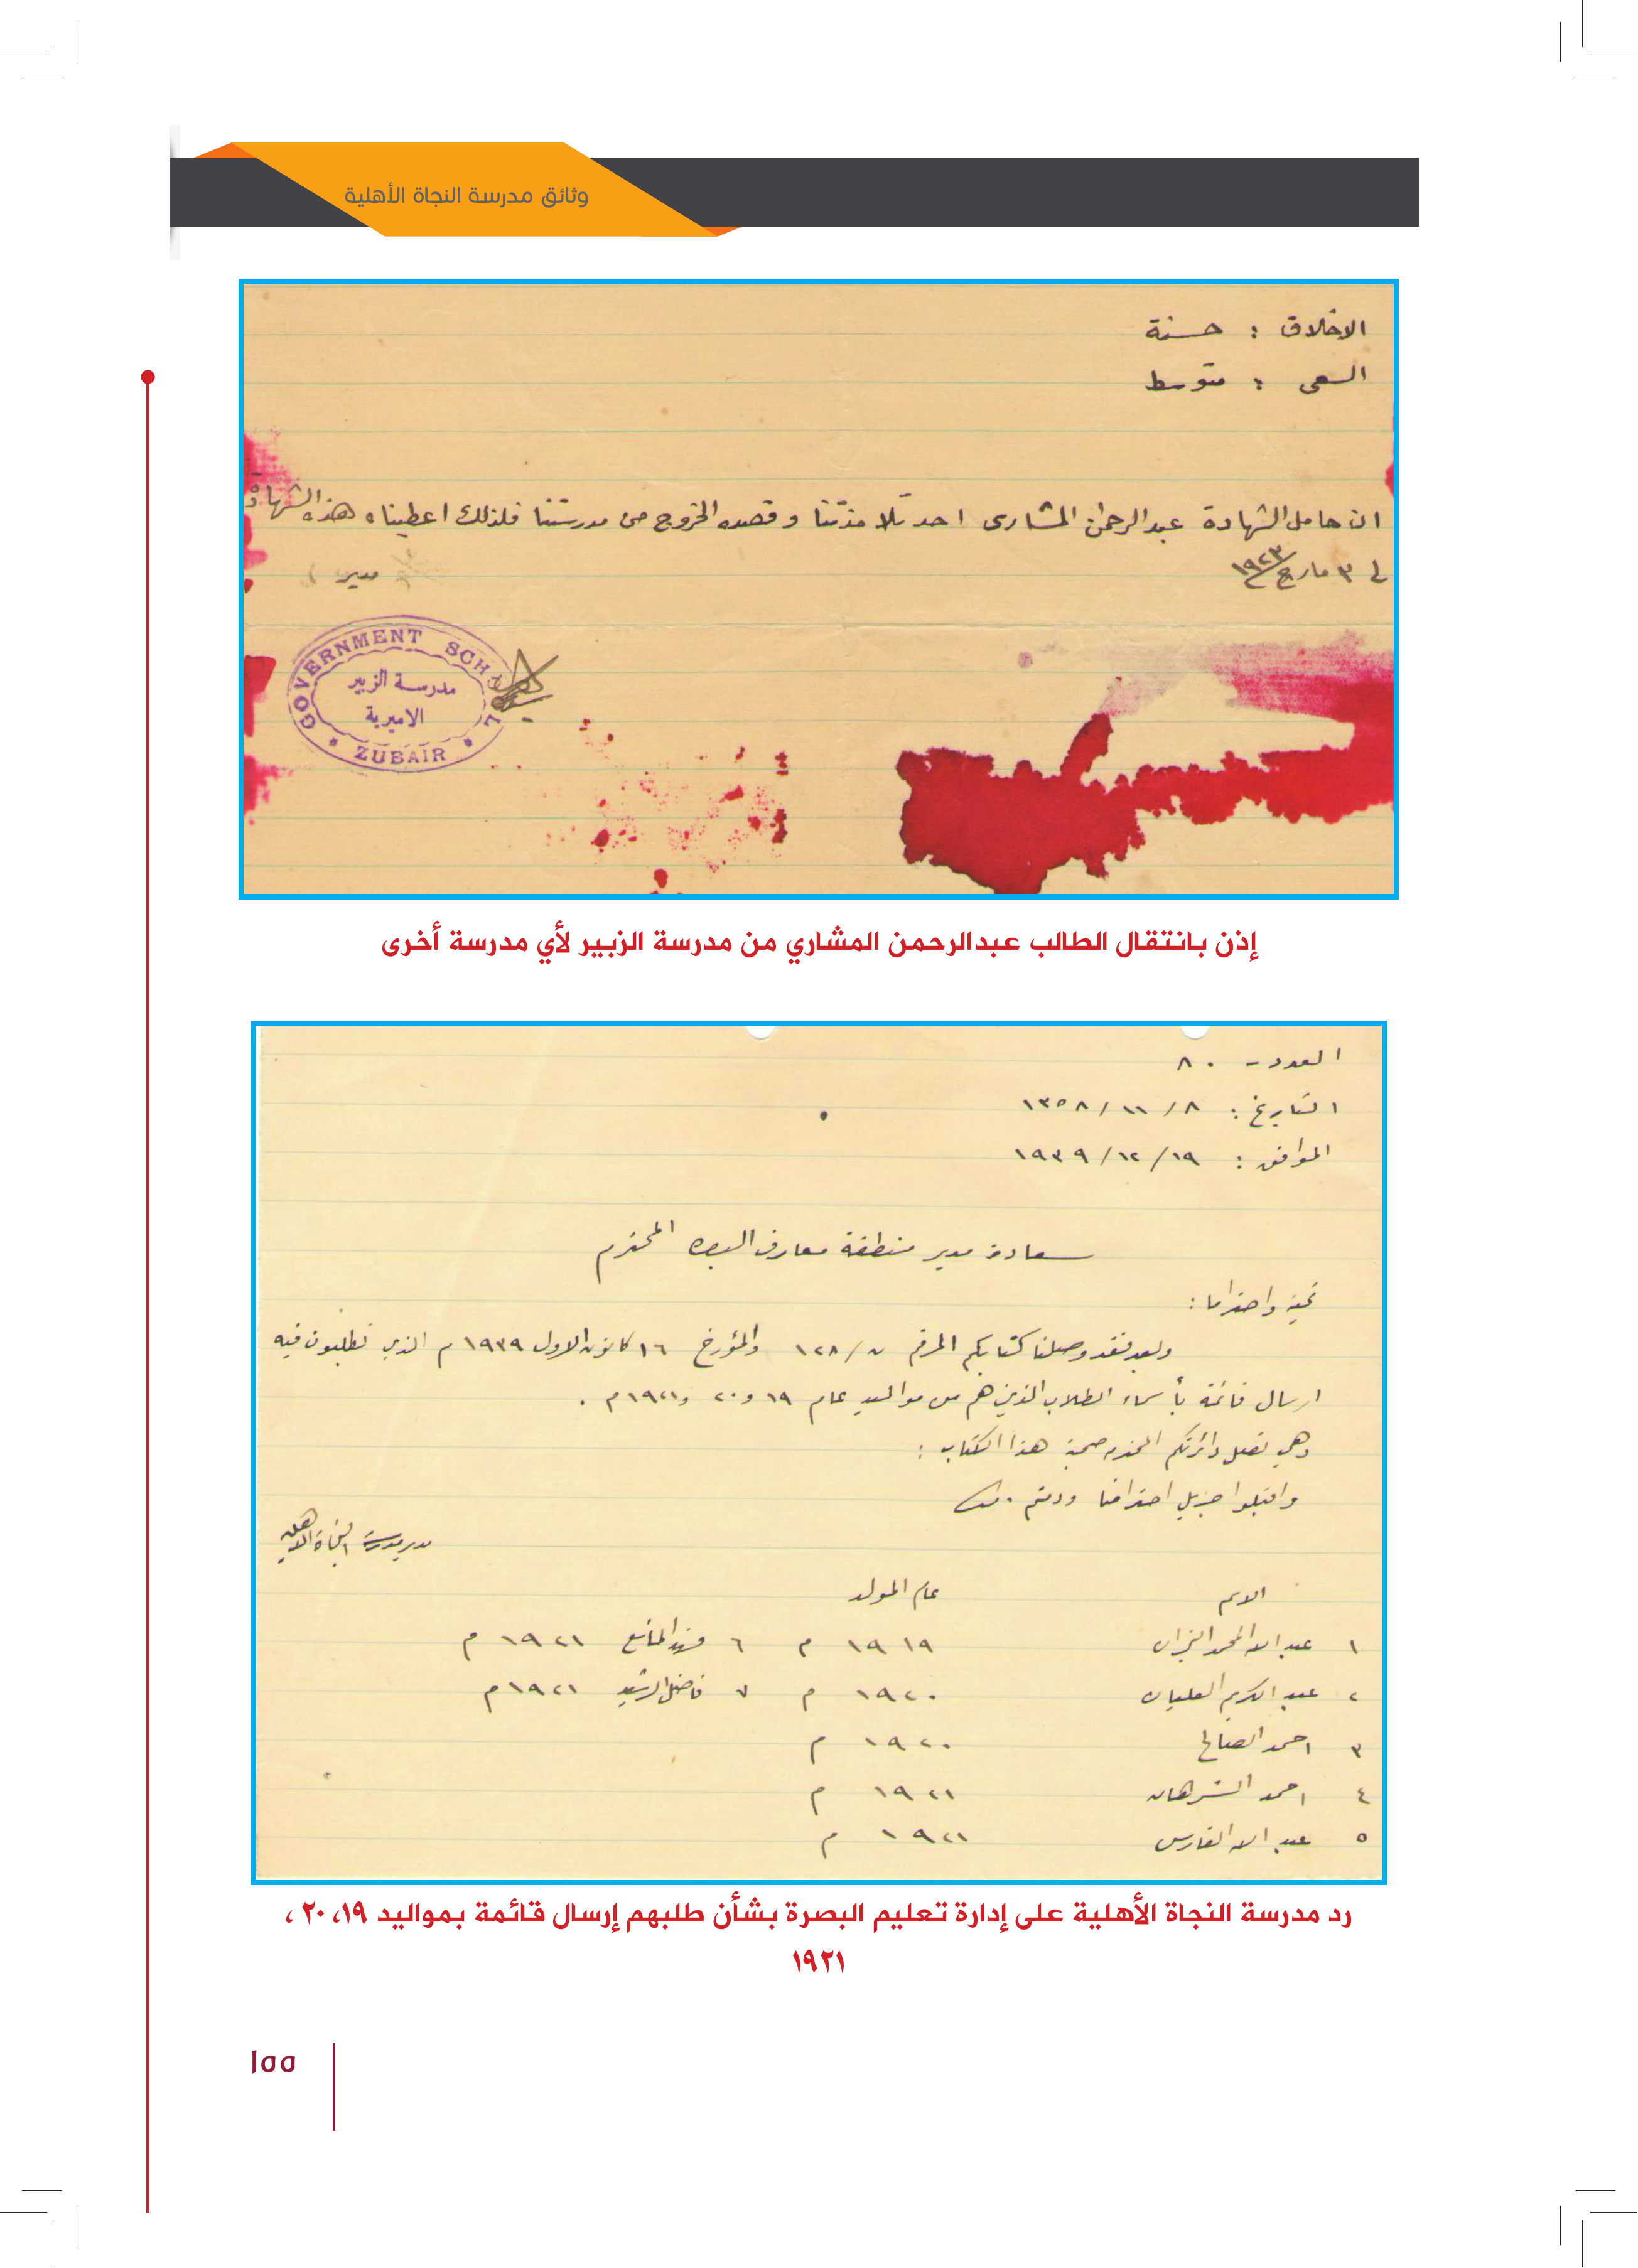 وثائق مدرسة النجاة الأهلية
الاخلاق : حسنة
السعى : متوسط
ان حامل الشهادة عبدالرحمن المشارى احد تلامذتنا وقصده الخروج من مدرستنا فلذلك اعطيناه هذه الشهادة
في ٣ مارچ ١٩٢٣
مدير
GOVERNMENT SCHOOL
مدرسة الزبير
الاميرية
* ZUBAIR *
إذن بانتقال الطالب عبدالرحمن المشاري من مدرسة الزبير لأي مدرسة أخرى
العدد - ٨٠
التاريخ : ٨ / ١١ / ١٣٥٨
الموافق : ١٩ / ١٢ / ١٩٣٩
سعادة مدير منطقة معارف البصره المحترم
تحية واحتراما :
وبعد فقد وصلنا كتابكم المرقم ن / ١٢٨ والمؤرخ ١٦ كانون الاول ١٩٣٩ م الذي تطلبون فيه
ارسال قائمة بأسماء الطلاب الذين هم من مواليد عام ١٩ و ٢٠ و ١٩٢١ م .
وهي تصل دائرتكم المحترمه صحبة هذا الكتاب :
واقبلوا جزيل احترامنا ودمتم .
مدير مدرسة النجاة الاهلية
الاسم عام المولد
١ عبد الله المحمد ١٩١٩ م ٦ فهد المانع ١٩٢١ م
٢ عبد الكريم العليان ١٩٢٠ م ٧ فاضل الرشيد ١٩٢١ م
٣ احمد الصالح ١٩٢٠ م
٤ احمد الشرهان ١٩٢١ م
٥ عبد الله الفارس ١٩٢١ م
رد مدرسة النجاة الأهلية على إدارة تعليم البصرة بشأن طلبهم إرسال قائمة بمواليد ١٩، ٢٠ ،
١٩٢١
١٥٥